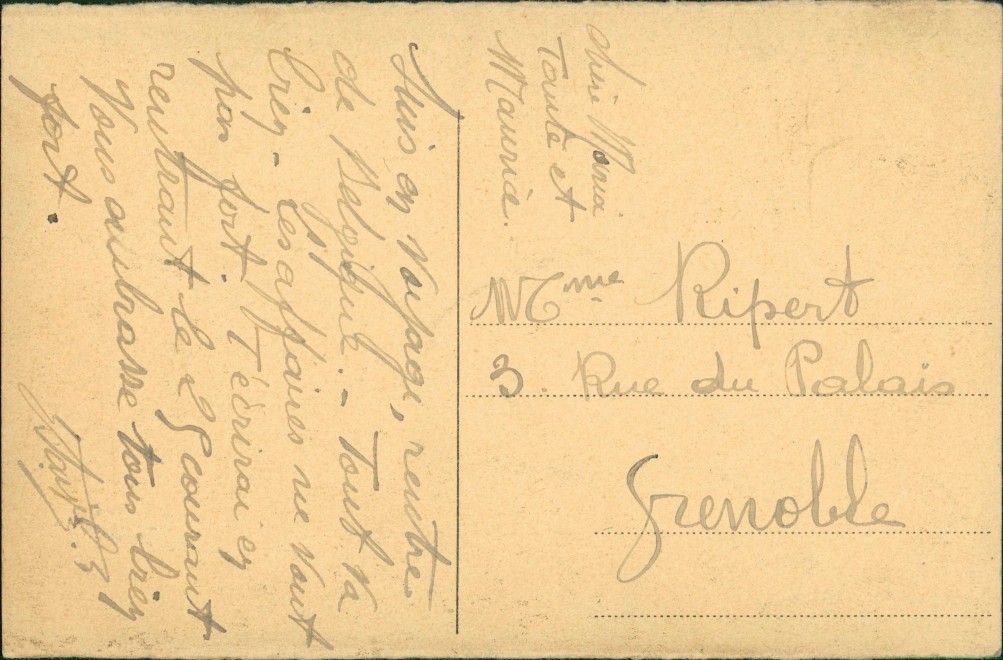 chère
Tante et
Maurice.
Suis en voyage, rentre
de Belgique. - Tout va
bien - les affaires ne vont
pas fort. T'écrirai en
rentrant le 25 courant
Vous embrasse tous bien
fort.
Mme Ripert
3. Rue du Palais
Grenoble